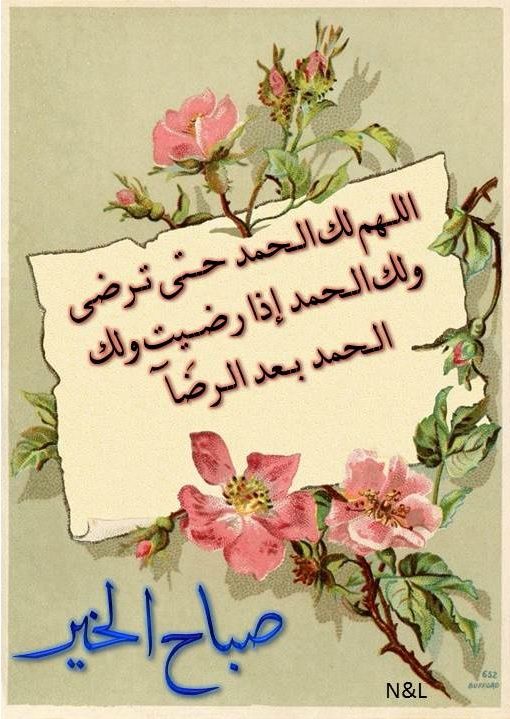 اللهم لك الحمد حتى ترضى
ولك الحمد إذا رضيت ولك
الحمد بعد الرضَآ
صباح الخير
652
BUFFORD
N&L